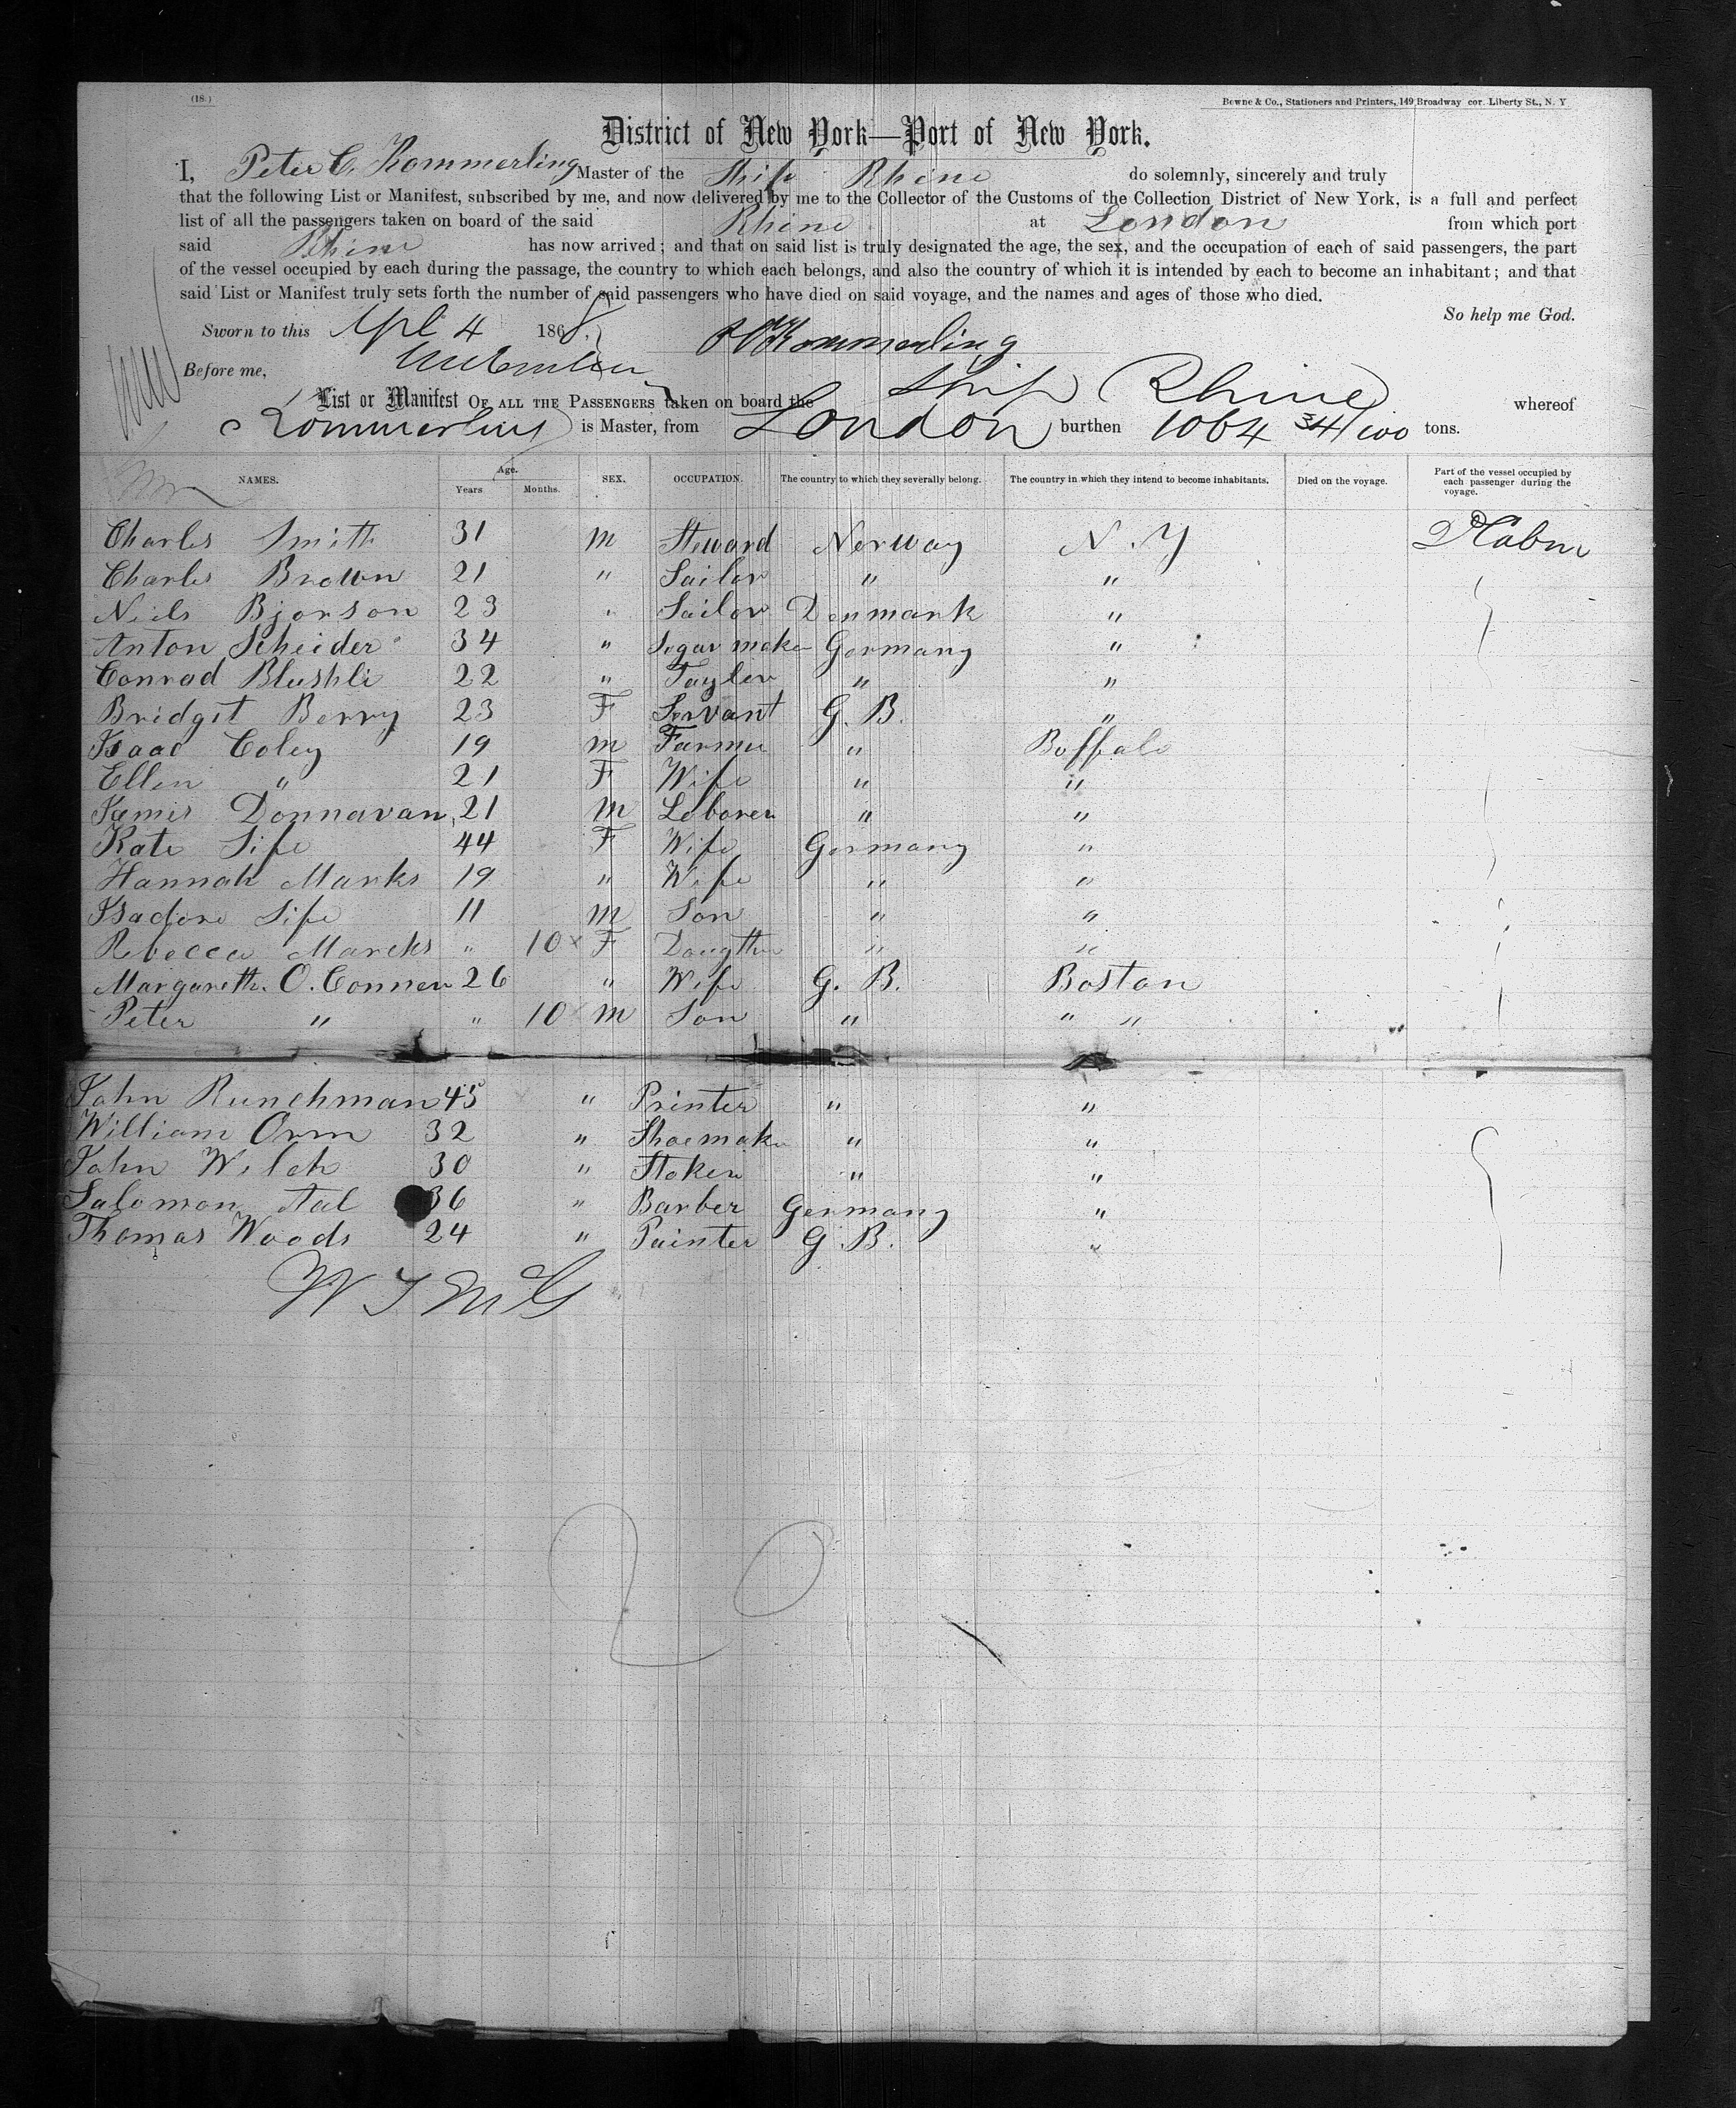 (18.)
Bowne & Co., Stationers and Printers, 149 Broadway cor. Liberty St., N. Y
District of New York—Port of New York.
I, Peter C. Kommerling Master of the Ship Rhine do solemnly, sincerely and truly
that the following List or Manifest, subscribed by me, and now delivered by me to the Collector of the Customs of the Collection District of New York, is a full and perfect
list of all the passengers taken on board of the said Rhine at London from which port
said Rhine has now arrived; and that on said list is truly designated the age, the sex, and the occupation of each of said passengers, the part
of the vessel occupied by each during the passage, the country to which each belongs, and also the country of which it is intended by each to become an inhabitant; and that
said List or Manifest truly sets forth the number of said passengers who have died on said voyage, and the names and ages of those who died.
So help me God.
Sworn to this Apl 4 1868. Kommerling
Before me,
List or Manifest OF ALL THE PASSENGERS taken on board the Ship Rhine whereof
Kommerling is Master, from London burthen 1064 34/100 tons.
NAMES. Age. Years Months. SEX. OCCUPATION. The country to which they severally belong. The country in which they intend to become inhabitants. Died on the voyage. Part of the vessel occupied by each passenger during the voyage.
Charles Smith 31 m Steward Norway N. Y
Charles Brown 21 " Sailor " "
Neils Bjorson 23 " Sailor Denmark "
Anton Scheider 34 " Segar maker Germany "
Conrad Blushli 22 " Tayler " "
Bridgit Berry 23 F Servant G. B. "
Isaac Coley 19 m Farmer " Boffalo
Ellen " 21 F Wife " "
James Donnavan, 21 m Laborer " "
Kate Sife 44 F Wife Germany "
Hannah Marks 19 " Wife " "
Isadore Sife 11 m Son " "
Rebecca Marcks " 10 x F Daugther " "
Margareth. O. Conner 26 " Wife G. B. Boston
Peter " " 10 m Son " " "
John Runchman 45 " Printer " "
William Orm 32 " Shoemaker " "
John Welch 30 " Stoker " "
Salomon Aal 36 " Barber Germany "
Thomas Woods 24 " Painter G. B. "
20